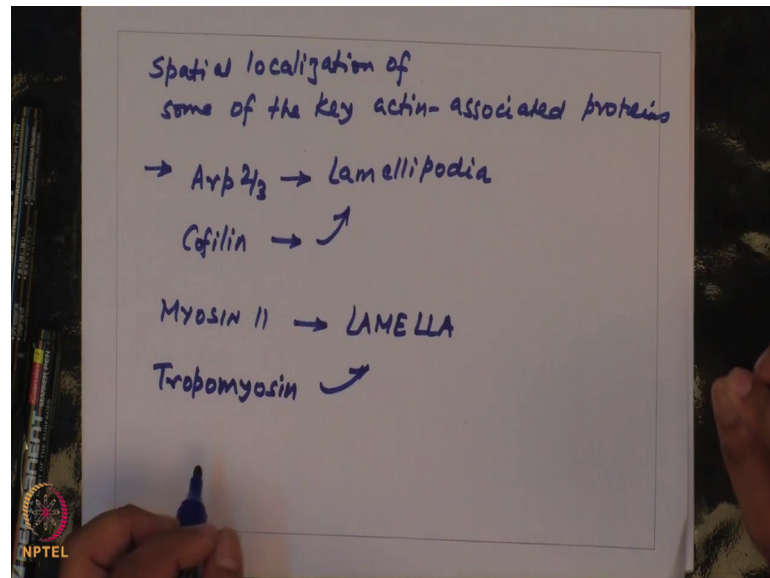 Spatial localization of
some of the key actin-associated proteins
→ Arp 2/3 → Lamellipodia
Cofilin →
MYOSIN II → LAMELLA
Tropomyosin
PERMANENT MARKER PEN
NPTEL